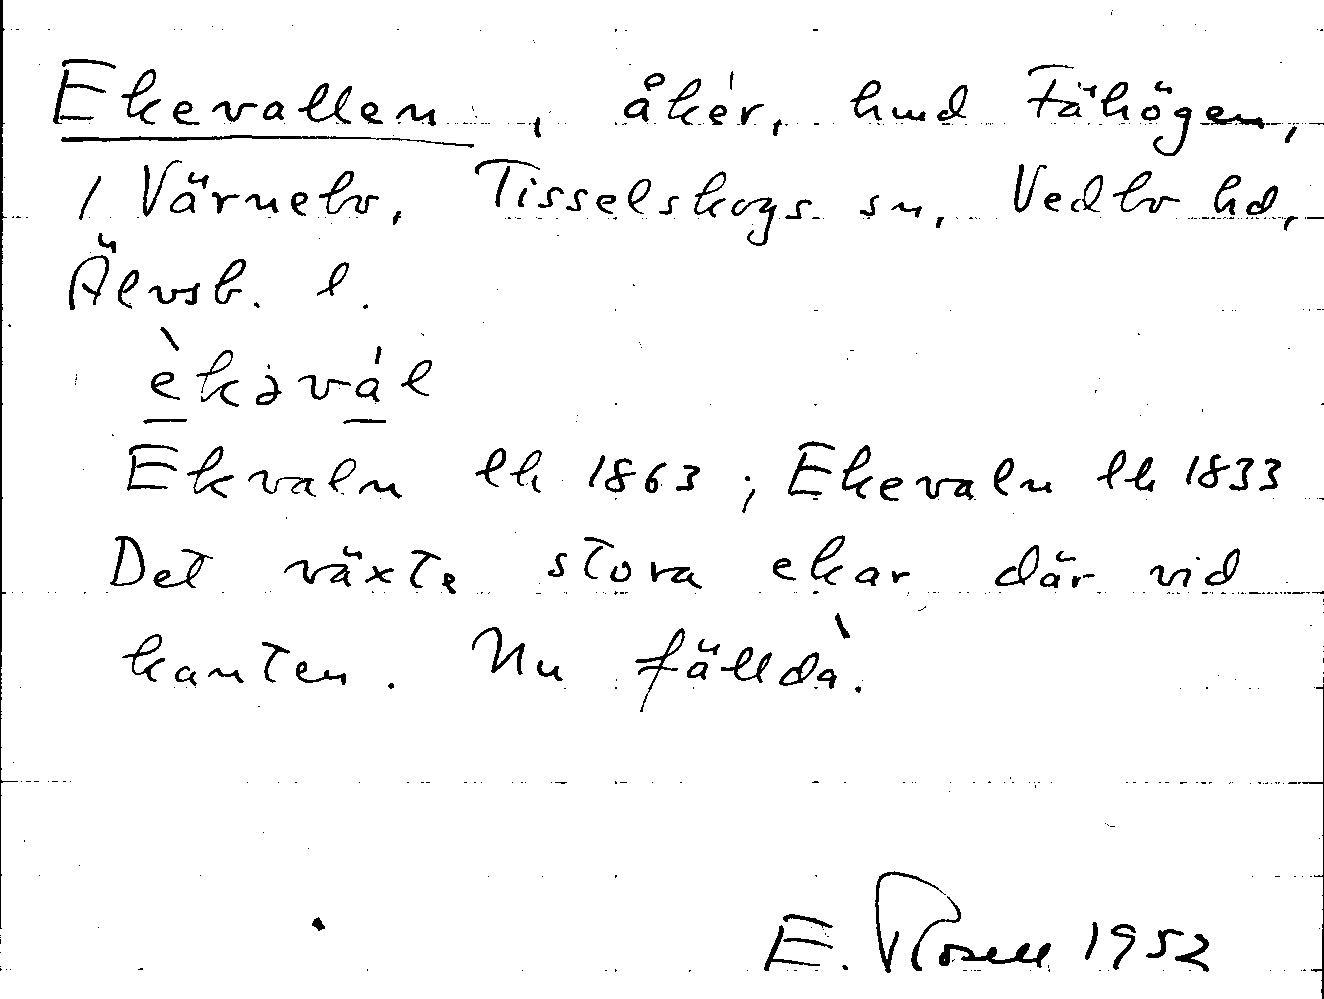 Ekevallen, åker, hmd Fähögen,
1 Värnebo, Tisselskogs sn, Vedbo hd,
Älvsb. l.
èkəvál
Ekvaln lh 1863; Ekevaln lh 1833
Det växte stora ekar där vid
kanten. Nu fällda.
E. Rosell 1952